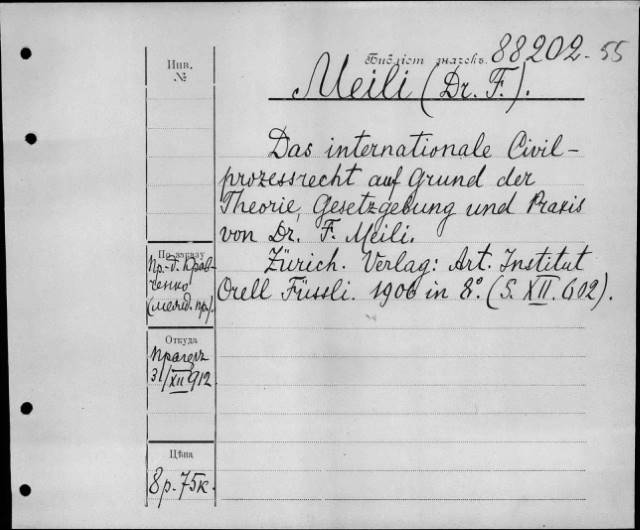 Инв.
№
Библіот значекъ. 88202-55
Meili (Dr. F.).
Das internationale Civil-
prozessrecht auf Grund der
Theorie, Gesetzgebung und Praxis
von Dr. F. Meili.
Zürich. Verlag: Art. Institut
Orell Füssli. 1906 in 8°. (S. XII. 602).
По заказу
Пр.-д. Крав-
ченко
(межд. пр).
Откуда
31/XII 912
Цѣна
8 р. 75 к.